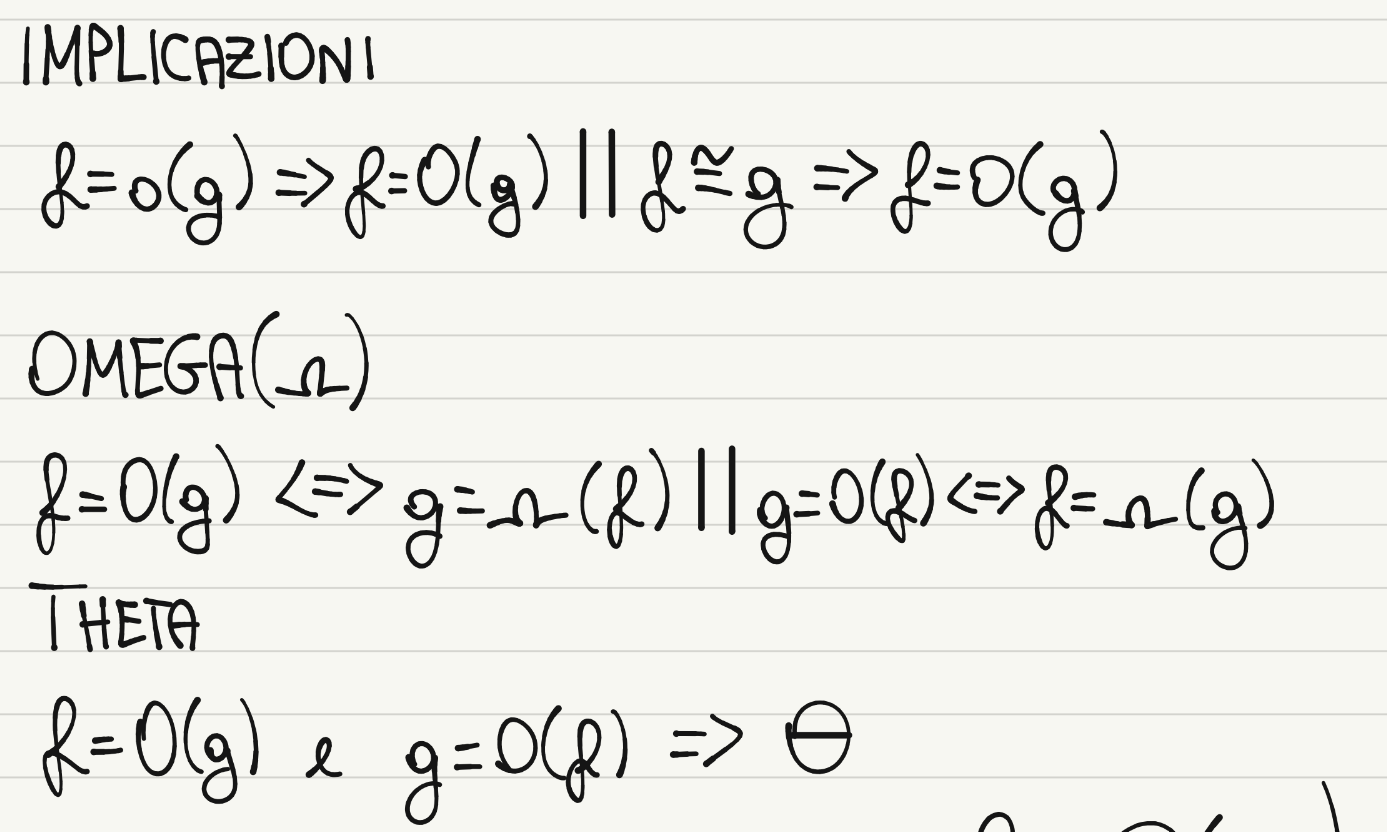 IMPLICAZIONI
f=o(g) => f=O(g) || f≅g => f=O(g)
OMEGA(Ω)
f=O(g) <=> g=Ω(f) || g=O(f) <=> f=Ω(g)
THETA
f=O(g) e g=O(f) => Θ